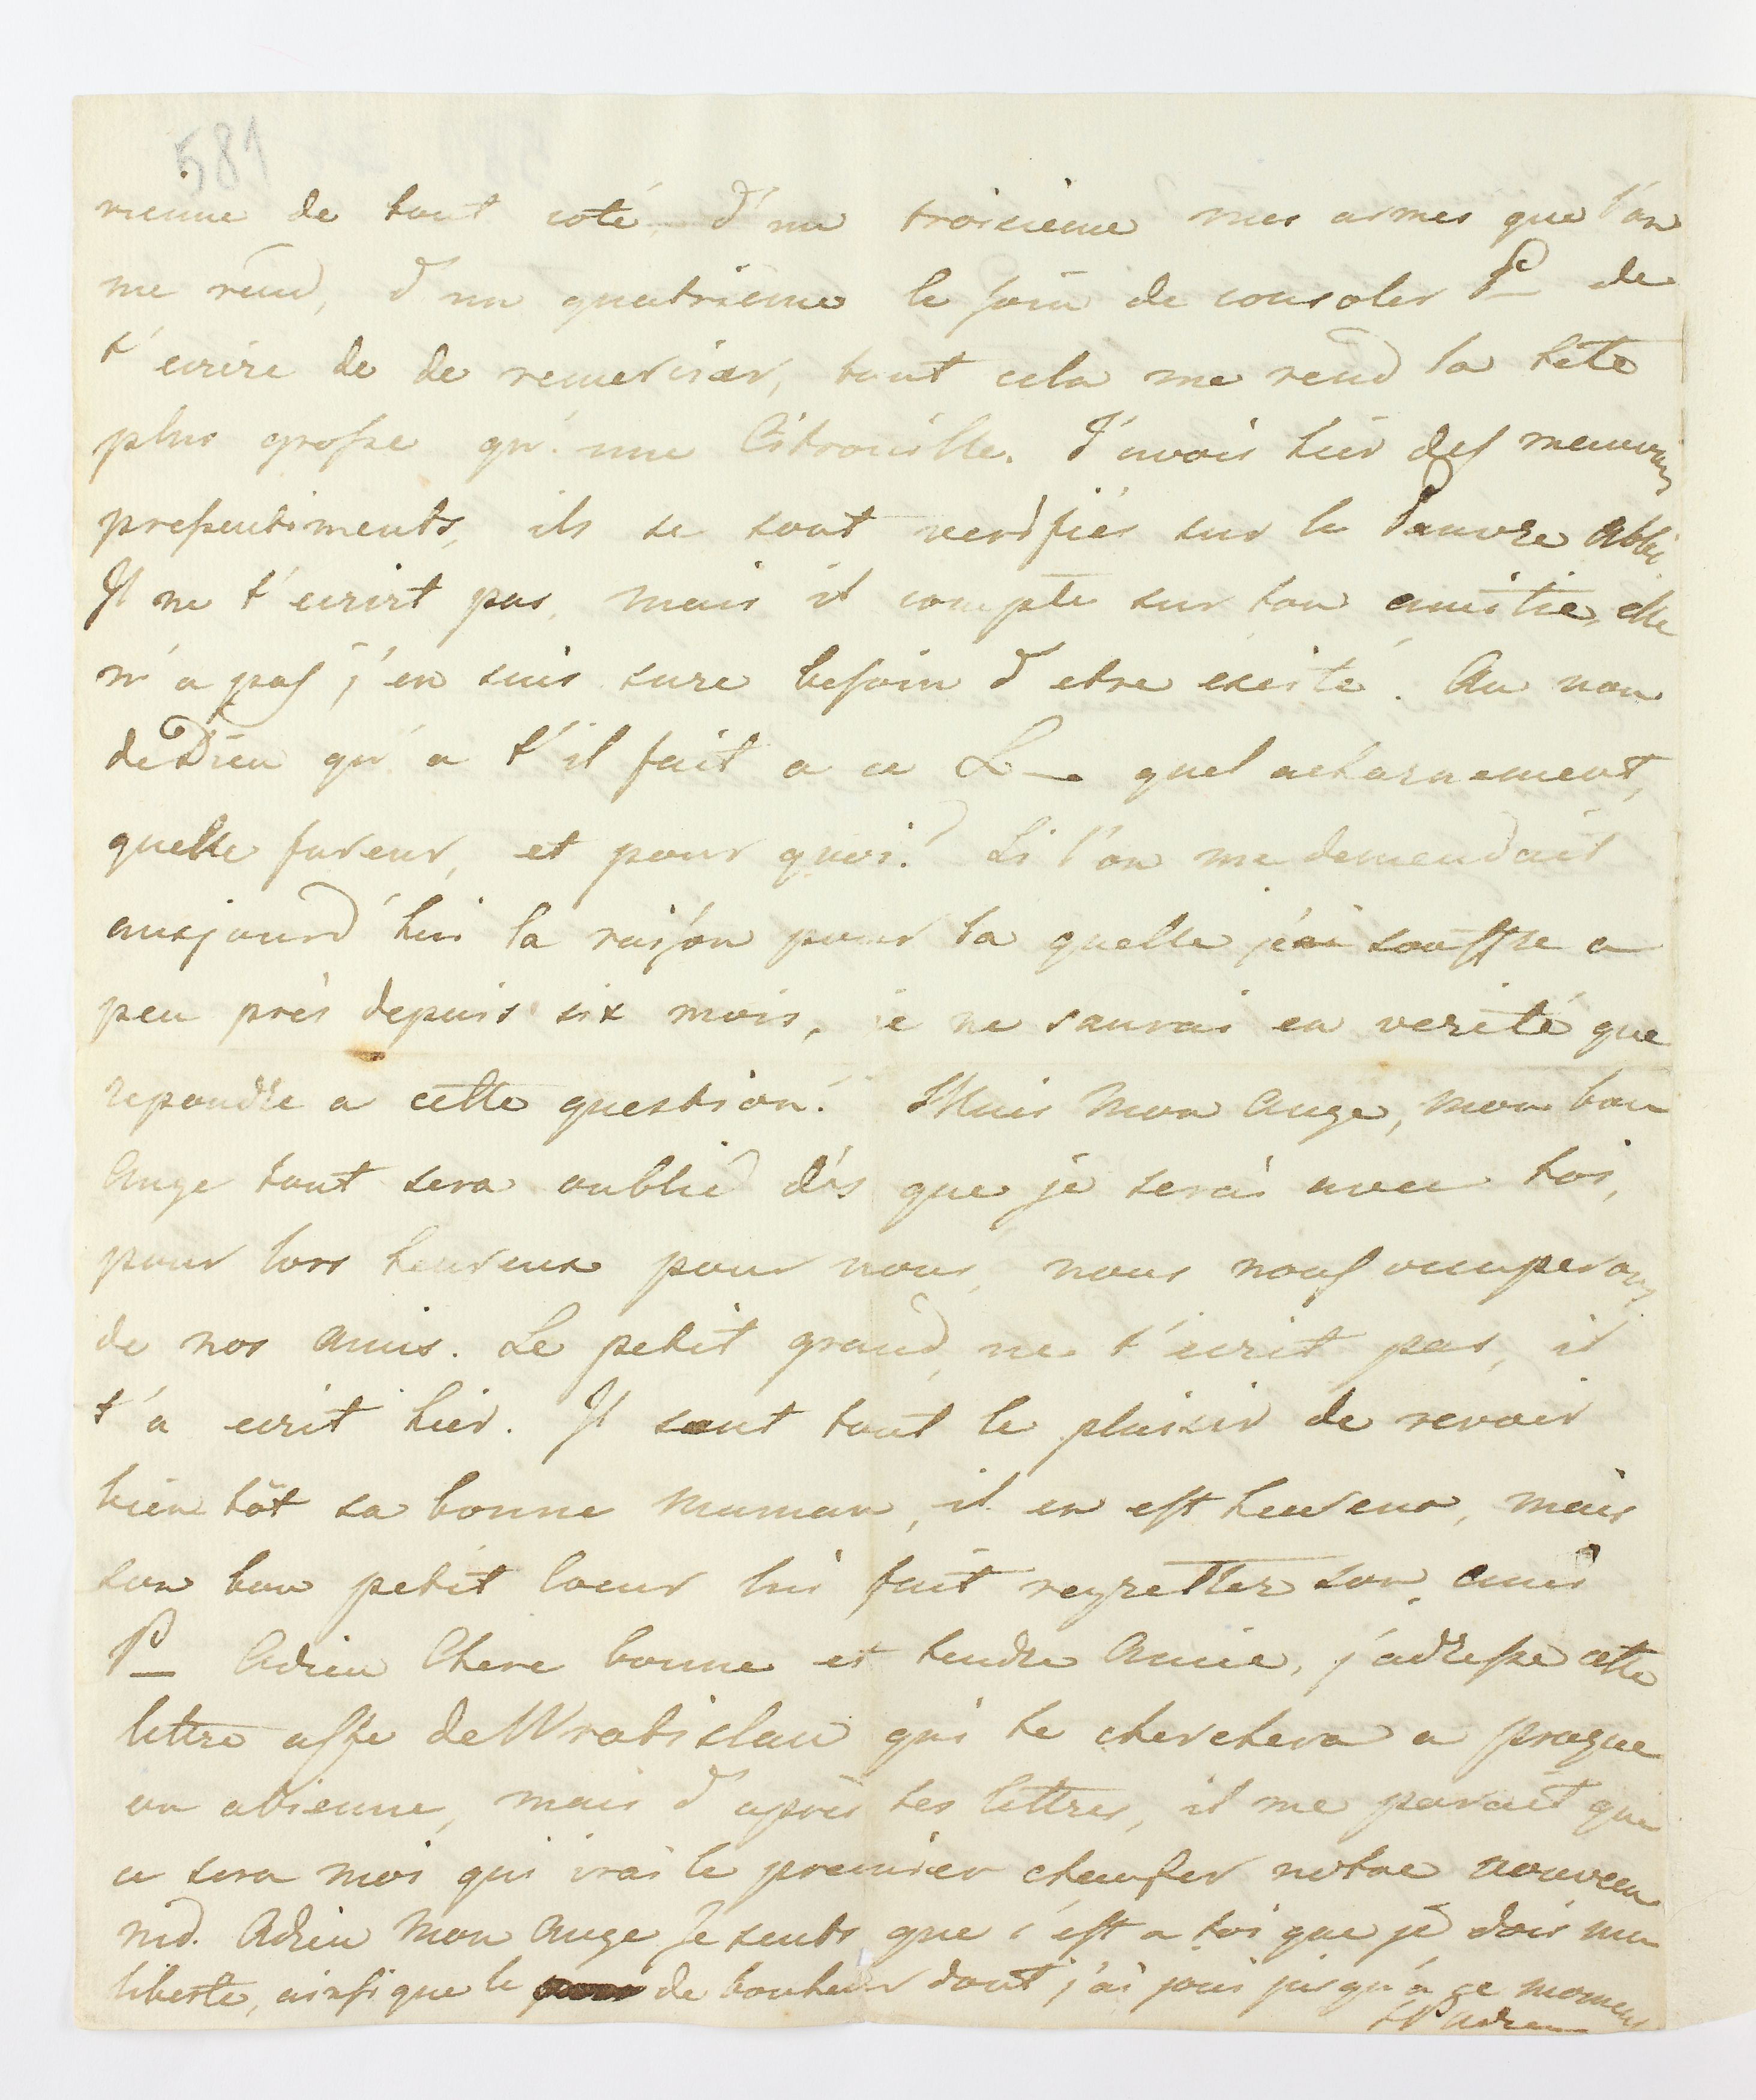 581
vienne de tout coté, d'un troisieme mes armes que l'on
me rend, d'un quatrieme le soin de consoler P— de
t'ecrire de de remercier, tout cela me rend la tete
plus grosse qu'une Citrouille. J'avois hier des mauvais
pressentiments, ils se sont verifiés sur le Pauvre Abbé
Il ne t'ecrirt pas, mais il compte sur ton amitie, elle
n'a pas j'en suis sure besoin d'etre exité. Au nom
de Dieu qu'a t'il fait a ce L— quel acharnement,
quelle fureur, et pour quoi? Si l'on me demendait
aujourd'hui la raison pour la quelle j'ai souffre a
peu près depuis six mois, je ne saurai en verité que
repondre a cette question? Mais Mon Ange, mon bon
Ange tout sera oublié dés que je serai avec toi,
pour lors heureux pour nous, nous nous occuperons
de nos Amis. Le petit grand ne t'ecrit pas, il
t'a ecrit hier. Il sent tout le plaisir de revoir
bien tôt sa bonne Maman, il en est heureux, mais
son bon petit Coeur lui fait regretter son Ami
P— Adieu Chere bonne et tendre Amie, j'adresse cette
lettre a de Wratislau qui te cherchera a Prague
ou a Vienne, mais d'après tes lettres, il me parait que
ce sera moi qui irai le premier chaufer notre nouveau
nid. Adieu Mon Ange Je sents que c'est a toi que je dois ma
liberte, ainsi que le de bonheur dont j'ai joui jusqu'à ce moment